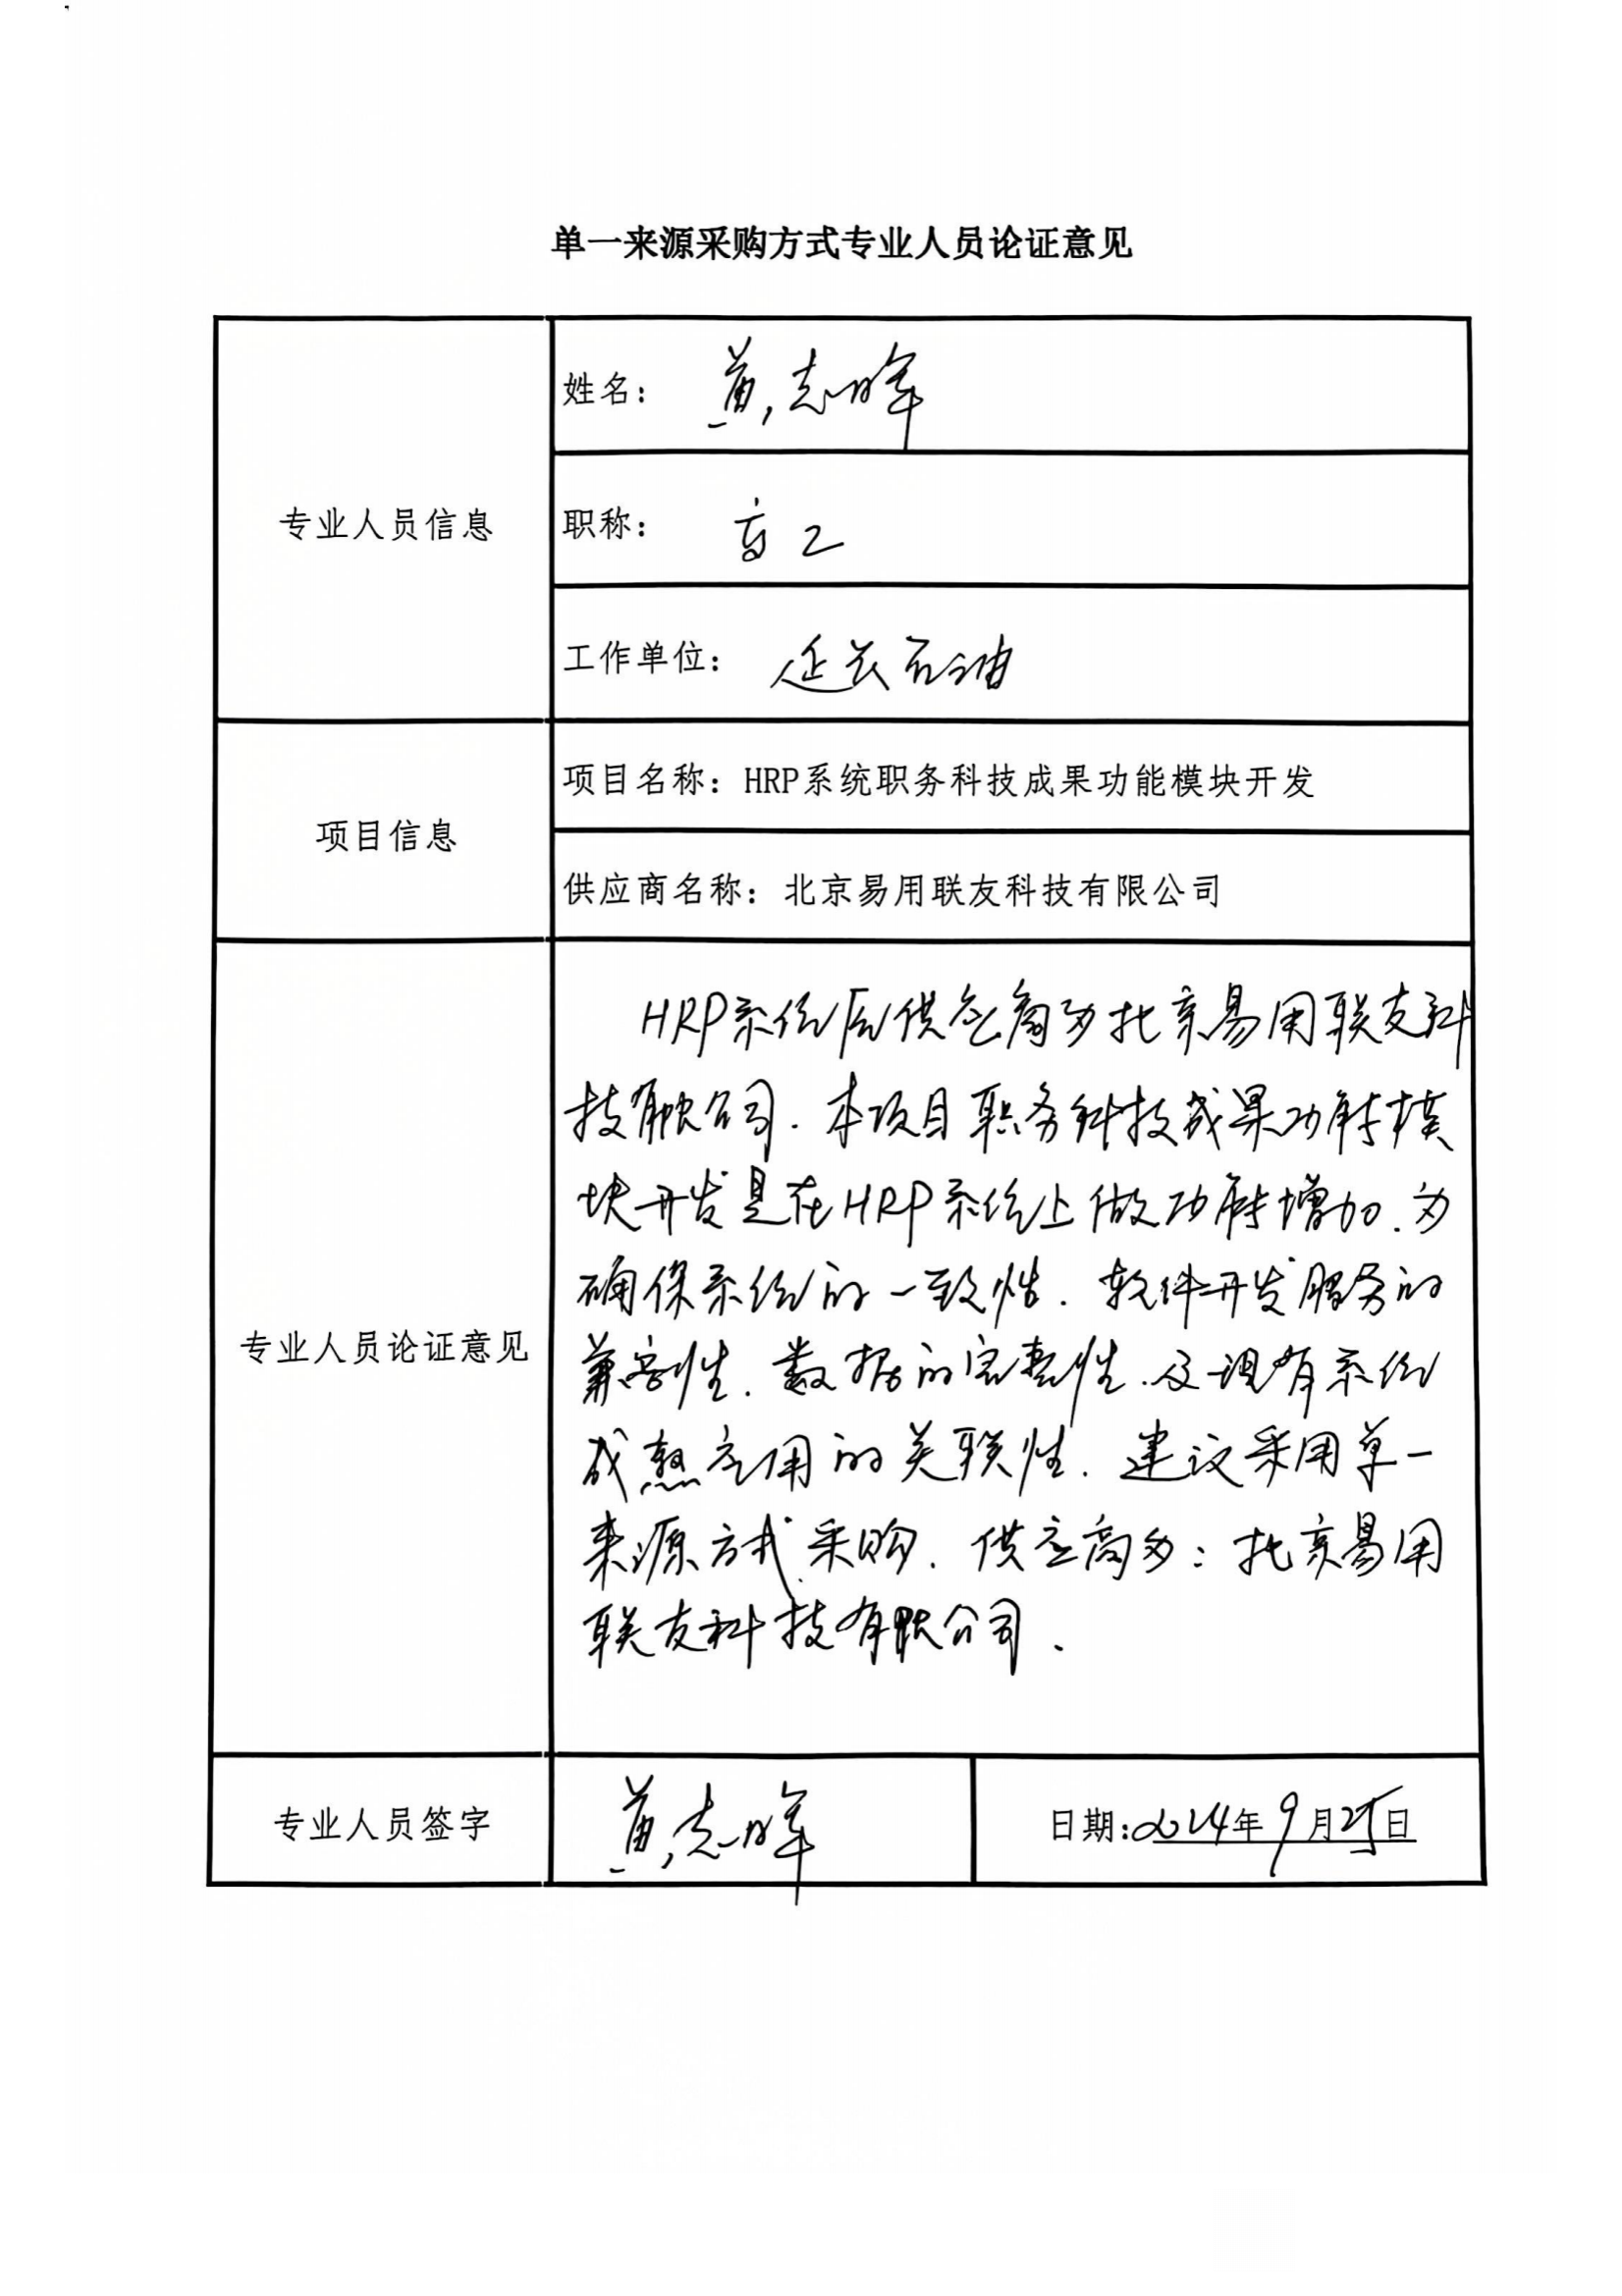 单一来源采购方式专业人员论证意见
专业人员信息
姓名： 黄志峰
职称： 高工
工作单位： 延长石油
项目信息
项目名称：HRP系统职务科技成果功能模块开发
供应商名称：北京易用联友科技有限公司
专业人员论证意见
HRP系统原供应商为北京易用联友科
技有限公司。本项目职务科技成果功能模
块开发是在HRP系统上做功能增加，为
确保系统的一致性、软件开发服务的
兼容性、数据的完整性、及现有系统
成熟应用的关联性，建议采用单一
来源方式采购，供应商为：北京易用
联友科技有限公司。
专业人员签字
黄志峰
日期：2024年9月25日